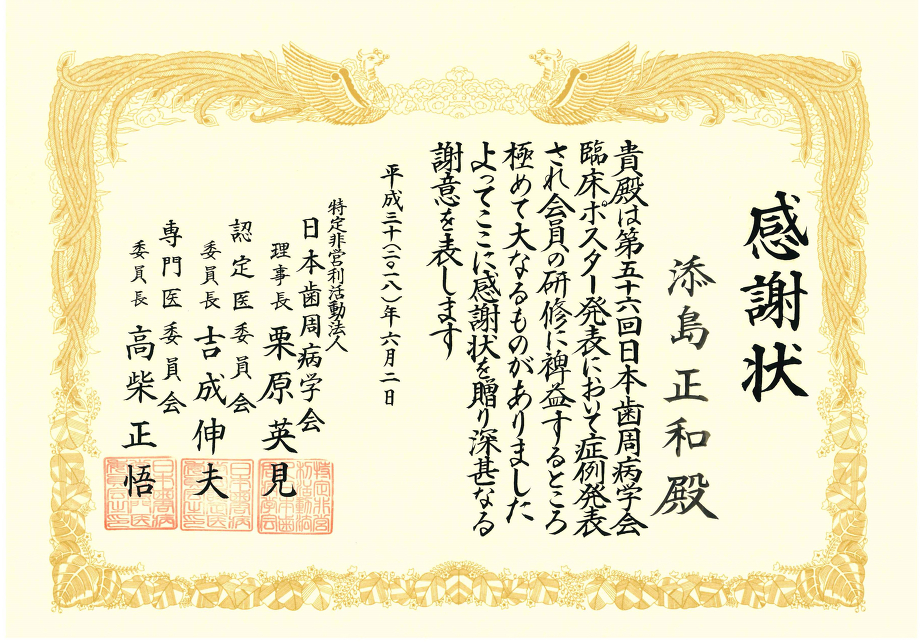 感謝状
添島正和殿
貴殿は第五十六回日本歯周病学会
臨床ポスター発表において症例発表
され会員の研修に裨益するところ
極めて大なるものがありました
よってここに感謝状を贈り深甚なる
謝意を表します
平成三十(二〇一八)年六月二日
特定非営利活動法人
日本歯周病学会
理事長 栗原英見
認定医委員会
委員長 吉成伸夫
専門医委員会
委員長 高柴正悟